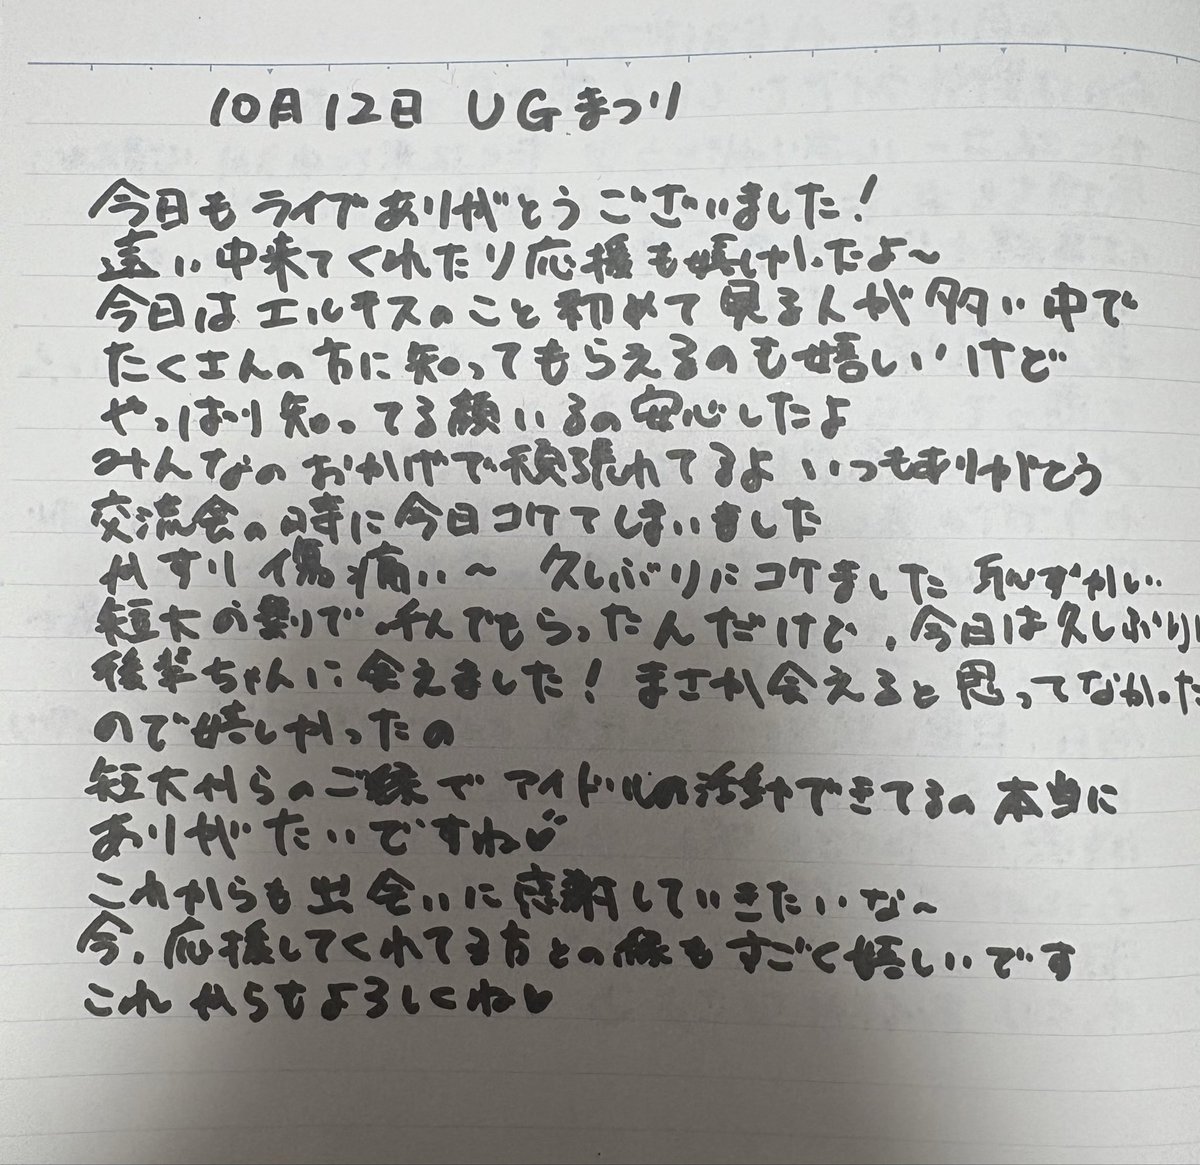 10月12日 UGまつり
今日もライブありがとうございました!
遠い中来てくれたり応援も嬉しかったよ〜
今日はエルキスのこと初めて見る人が多い中で
たくさんの方に知ってもらえるのも嬉しいけど
やっぱり知ってる顔いるの安心したよ
みんなのおかげで頑張れてるよ いつもありがとう
交流会の時に今日コケてしまいました
かすり傷痛い〜 久しぶりにコケました 恥ずかしい
短大の割で呼んでもらったんだけど、今日は久しぶりに
後輩ちゃんに会えました! まさか会えると思ってなかった
ので嬉しかったの
短大からのご縁でアイドルの活動できてるの本当に
ありがたいですね♥
これからも出会いに感謝していきたいな〜
今、応援してくれてる方との縁もすごく嬉しいです
これからもよろしくね♥